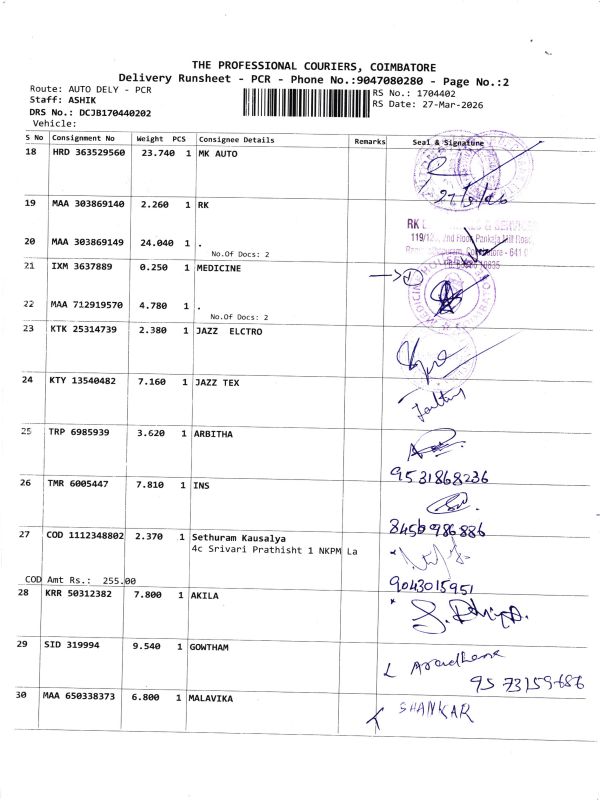 THE PROFESSIONAL COURIERS, COIMBATORE
Delivery Runsheet - PCR - Phone No.:9047080280 - Page No.:2
Route: AUTO DELY - PCR
RS No.: 1704402
Staff: ASHIK
RS Date: 27-Mar-2026
DRS No.: DCJB170440202
Vehicle:
S No Consignment No Weight PCS Consignee Details Remarks Seal & Signature
18 HRD 363529560 23.740 1 MK AUTO
27/3/26
19 MAA 303869140 2.260 1 RK
RK
119/12 2nd Floor, Pankaja Mill Road,
20 MAA 303869149 24.040 1 .
No.Of Docs: 2
21 IXM 3637889 0.250 1 MEDICINE
22 MAA 712919570 4.780 1 .
No.Of Docs: 2
23 KTK 25314739 2.380 1 JAZZ ELCTRO
24 KTY 13540482 7.160 1 JAZZ TEX
25 TRP 6985939 3.620 1 ARBITHA
9531868236
26 TMR 6005447 7.810 1 INS
8450986886
27 COD 1112348802 2.370 1 Sethuram Kausalya
4c Srivari Prathisht 1 NKPM La
COD Amt Rs.: 255.00
9043015951
28 KRR 50312382 7.800 1 AKILA
29 SID 319994 9.540 1 GOWTHAM
Aradhana
9573159686
30 MAA 650338373 6.800 1 MALAVIKA
SHANKAR